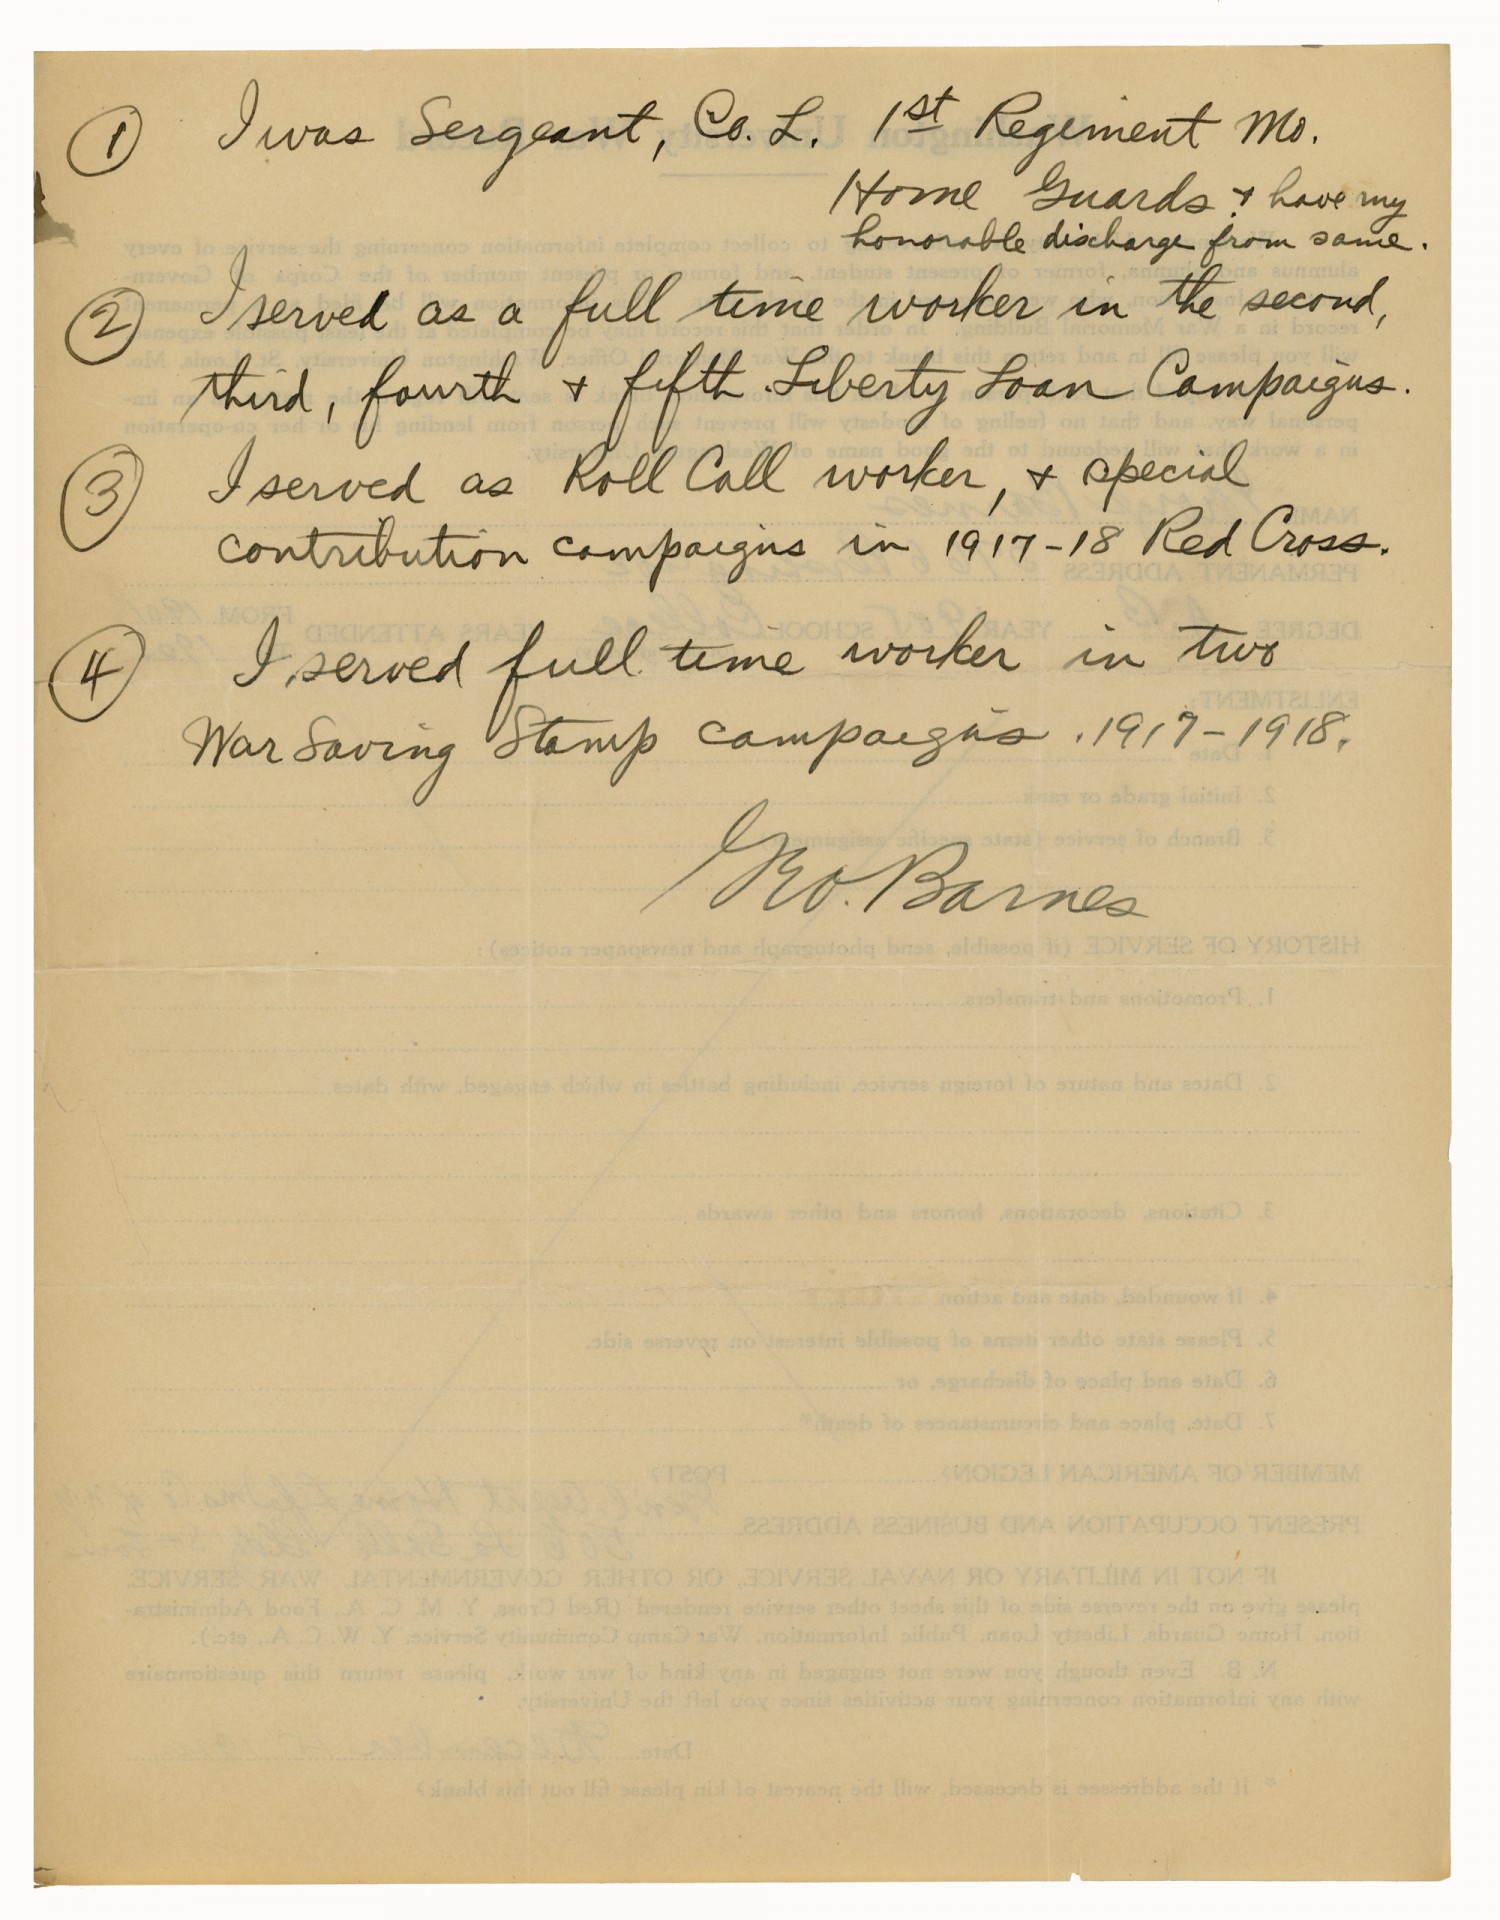 ① I was Sergeant, Co. L. 1st Regiment Mo.
Home Guards & have my
honorable discharge from same.
② I served as a full time worker in the second,
third, fourth & fifth Liberty Loan Campaigns.
③ I served as Roll Call worker, & special
contribution campaigns in 1917-18 Red Cross.
④ I served full time worker in two
War Saving Stamp campaigns. 1917-1918.
Geo. Barnes